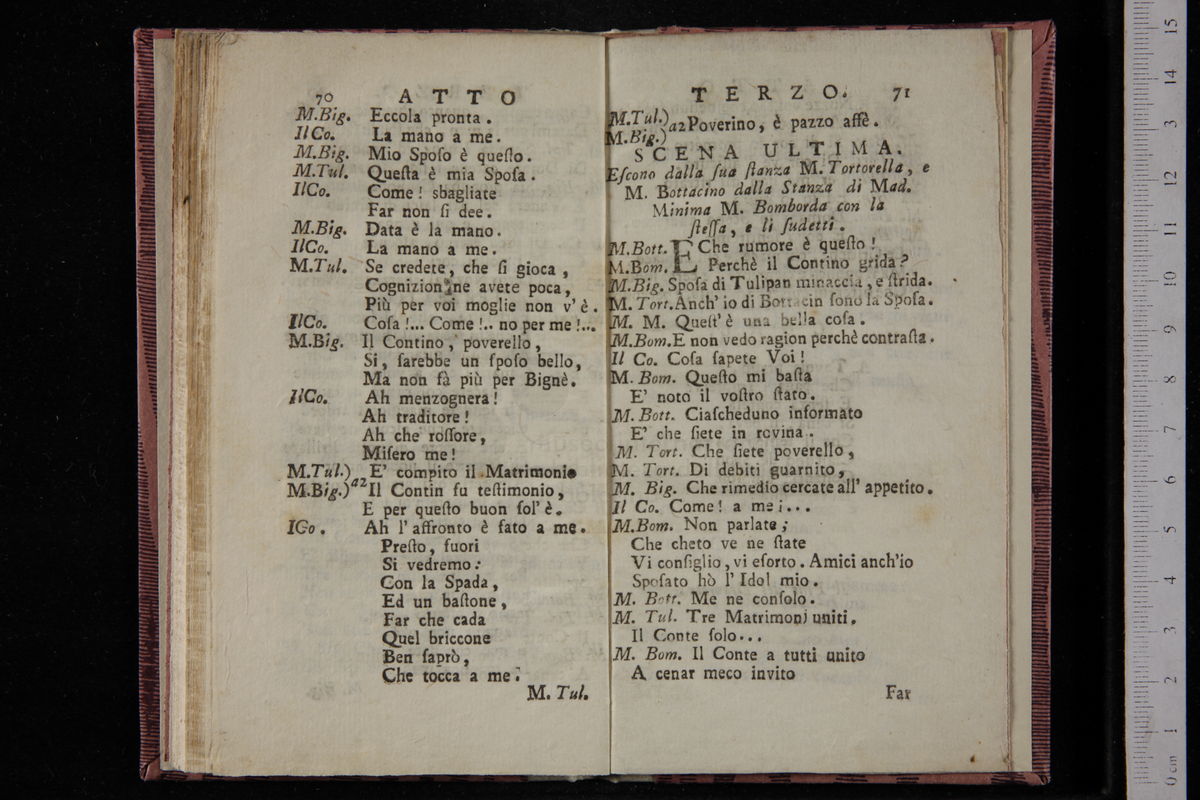 70 ATTO
M.Big. Eccola pronta.
IlCo. La mano a me.
M.Big. Mio Spoſo è queſto.
M.Tul. Queſta è mia Spoſa.
IlCo. Come! sbagliate
Far non ſi dee.
M.Big. Data è la mano.
IlCo. La mano a me.
M.Tul. Se credete, che ſi gioca,
Cognizion ne avete poca,
Più per voi moglie non v'è.
IlCo. Coſa!... Come!.. no per me!...
M.Big. Il Contino, poverello,
Si, ſarebbe un ſpoſo bello,
Ma non fà più per Bignè.
IlCo. Ah menzognera!
Ah traditore!
Ah che roſſore,
Miſero me!
M.Tul.) E' compito il Matrimonio
M.Big.) a2 Il Contin fu teſtimonio,
E per queſto buon ſol'è.
ICo. Ah l'affronto è fato a me.
Preſto, fuori
Si vedremo:
Con la Spada,
Ed un baſtone,
Far che cada
Quel briccone
Ben ſaprò,
Che tocca a me.
M. Tul.
TERZO. 71
M.Tul.) a2 Poverino, è pazzo affè.
M.Big.)
SCENA ULTIMA.
Eſcono dalla ſua ſtanza M. Tortorella, e
M. Bottacino dalla Stanza di Mad.
Minima M. Bomborda con la
ſteſſa, e li ſudetti.
M.Bott. E Che rumore è queſto!
M.Bom. Perchè il Contino grida?
M.Big. Spoſa di Tulipan minaccia, e ſtrida.
M. Tort. Anch'io di Bottacin ſono la Spoſa.
M. M. Queſt'è una bella coſa.
M.Bom. E non vedo ragion perchè contraſta.
Il Co. Coſa ſapete Voi!
M. Bom. Queſto mi baſta
E' noto il voſtro ſtato.
M. Bott. Ciaſcheduno informato
E' che ſiete in rovina.
M. Tort. Che ſiete poverello,
M. Tort. Di debiti guarnito,
M. Big. Che rimedio cercate all'appetito.
Il Co. Come! a me;...
M.Bom. Non parlate;
Che cheto ve ne ſtate
Vi conſiglio, vi eſorto. Amici anch'io
Spoſato hò l'Idol mio.
M. Bott. Me ne conſolo.
M. Tul. Tre Matrimonj uniti.
Il Conte ſolo...
M. Bom. Il Conte a tutti unito
A cenar meco invito
Far